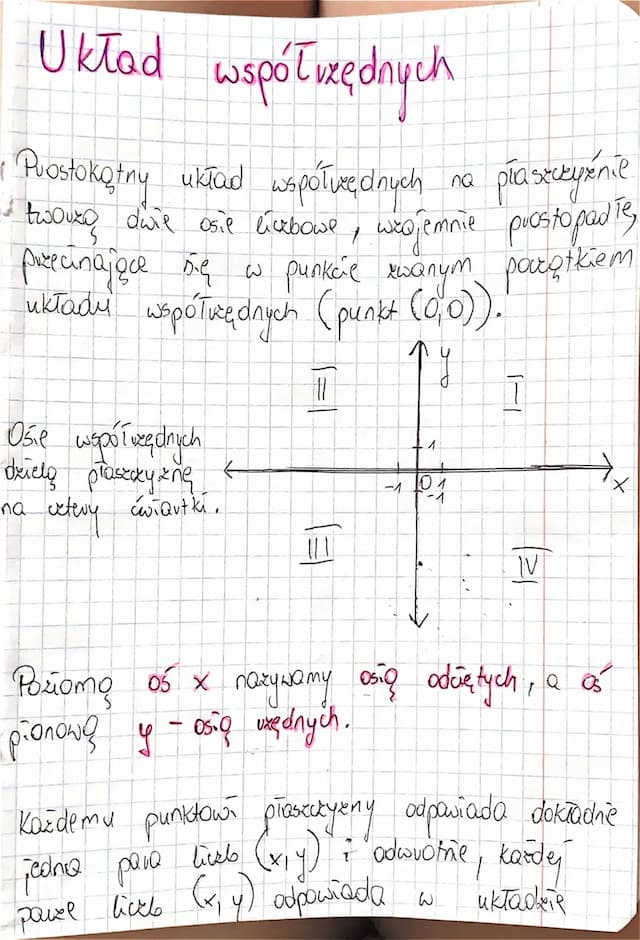 Układ współrzędnych
Prostokątny układ współrzędnych na płaszczyźnie
tworzą dwie osie liczbowe, wzajemnie prostopadłę
przecinające się w punkcie zwanym początkiem
układu współrzędnych (punkt (0,0)).
y
II
I
Osie współrzędnych
dzielą płaszczyznę
na cztery ćwiartki.
1
-1
0
1
-1
x
III
IV
Poziomą oś x nazywamy osią odciętych, a oś
pionową y - osią rzędnych.
Każdemu punktowi płaszczyzny odpowiada dokładnie
jedna para liczb (x,y) i odwrotnie, każdej
parze liczb (x,y) odpowiada w układzie